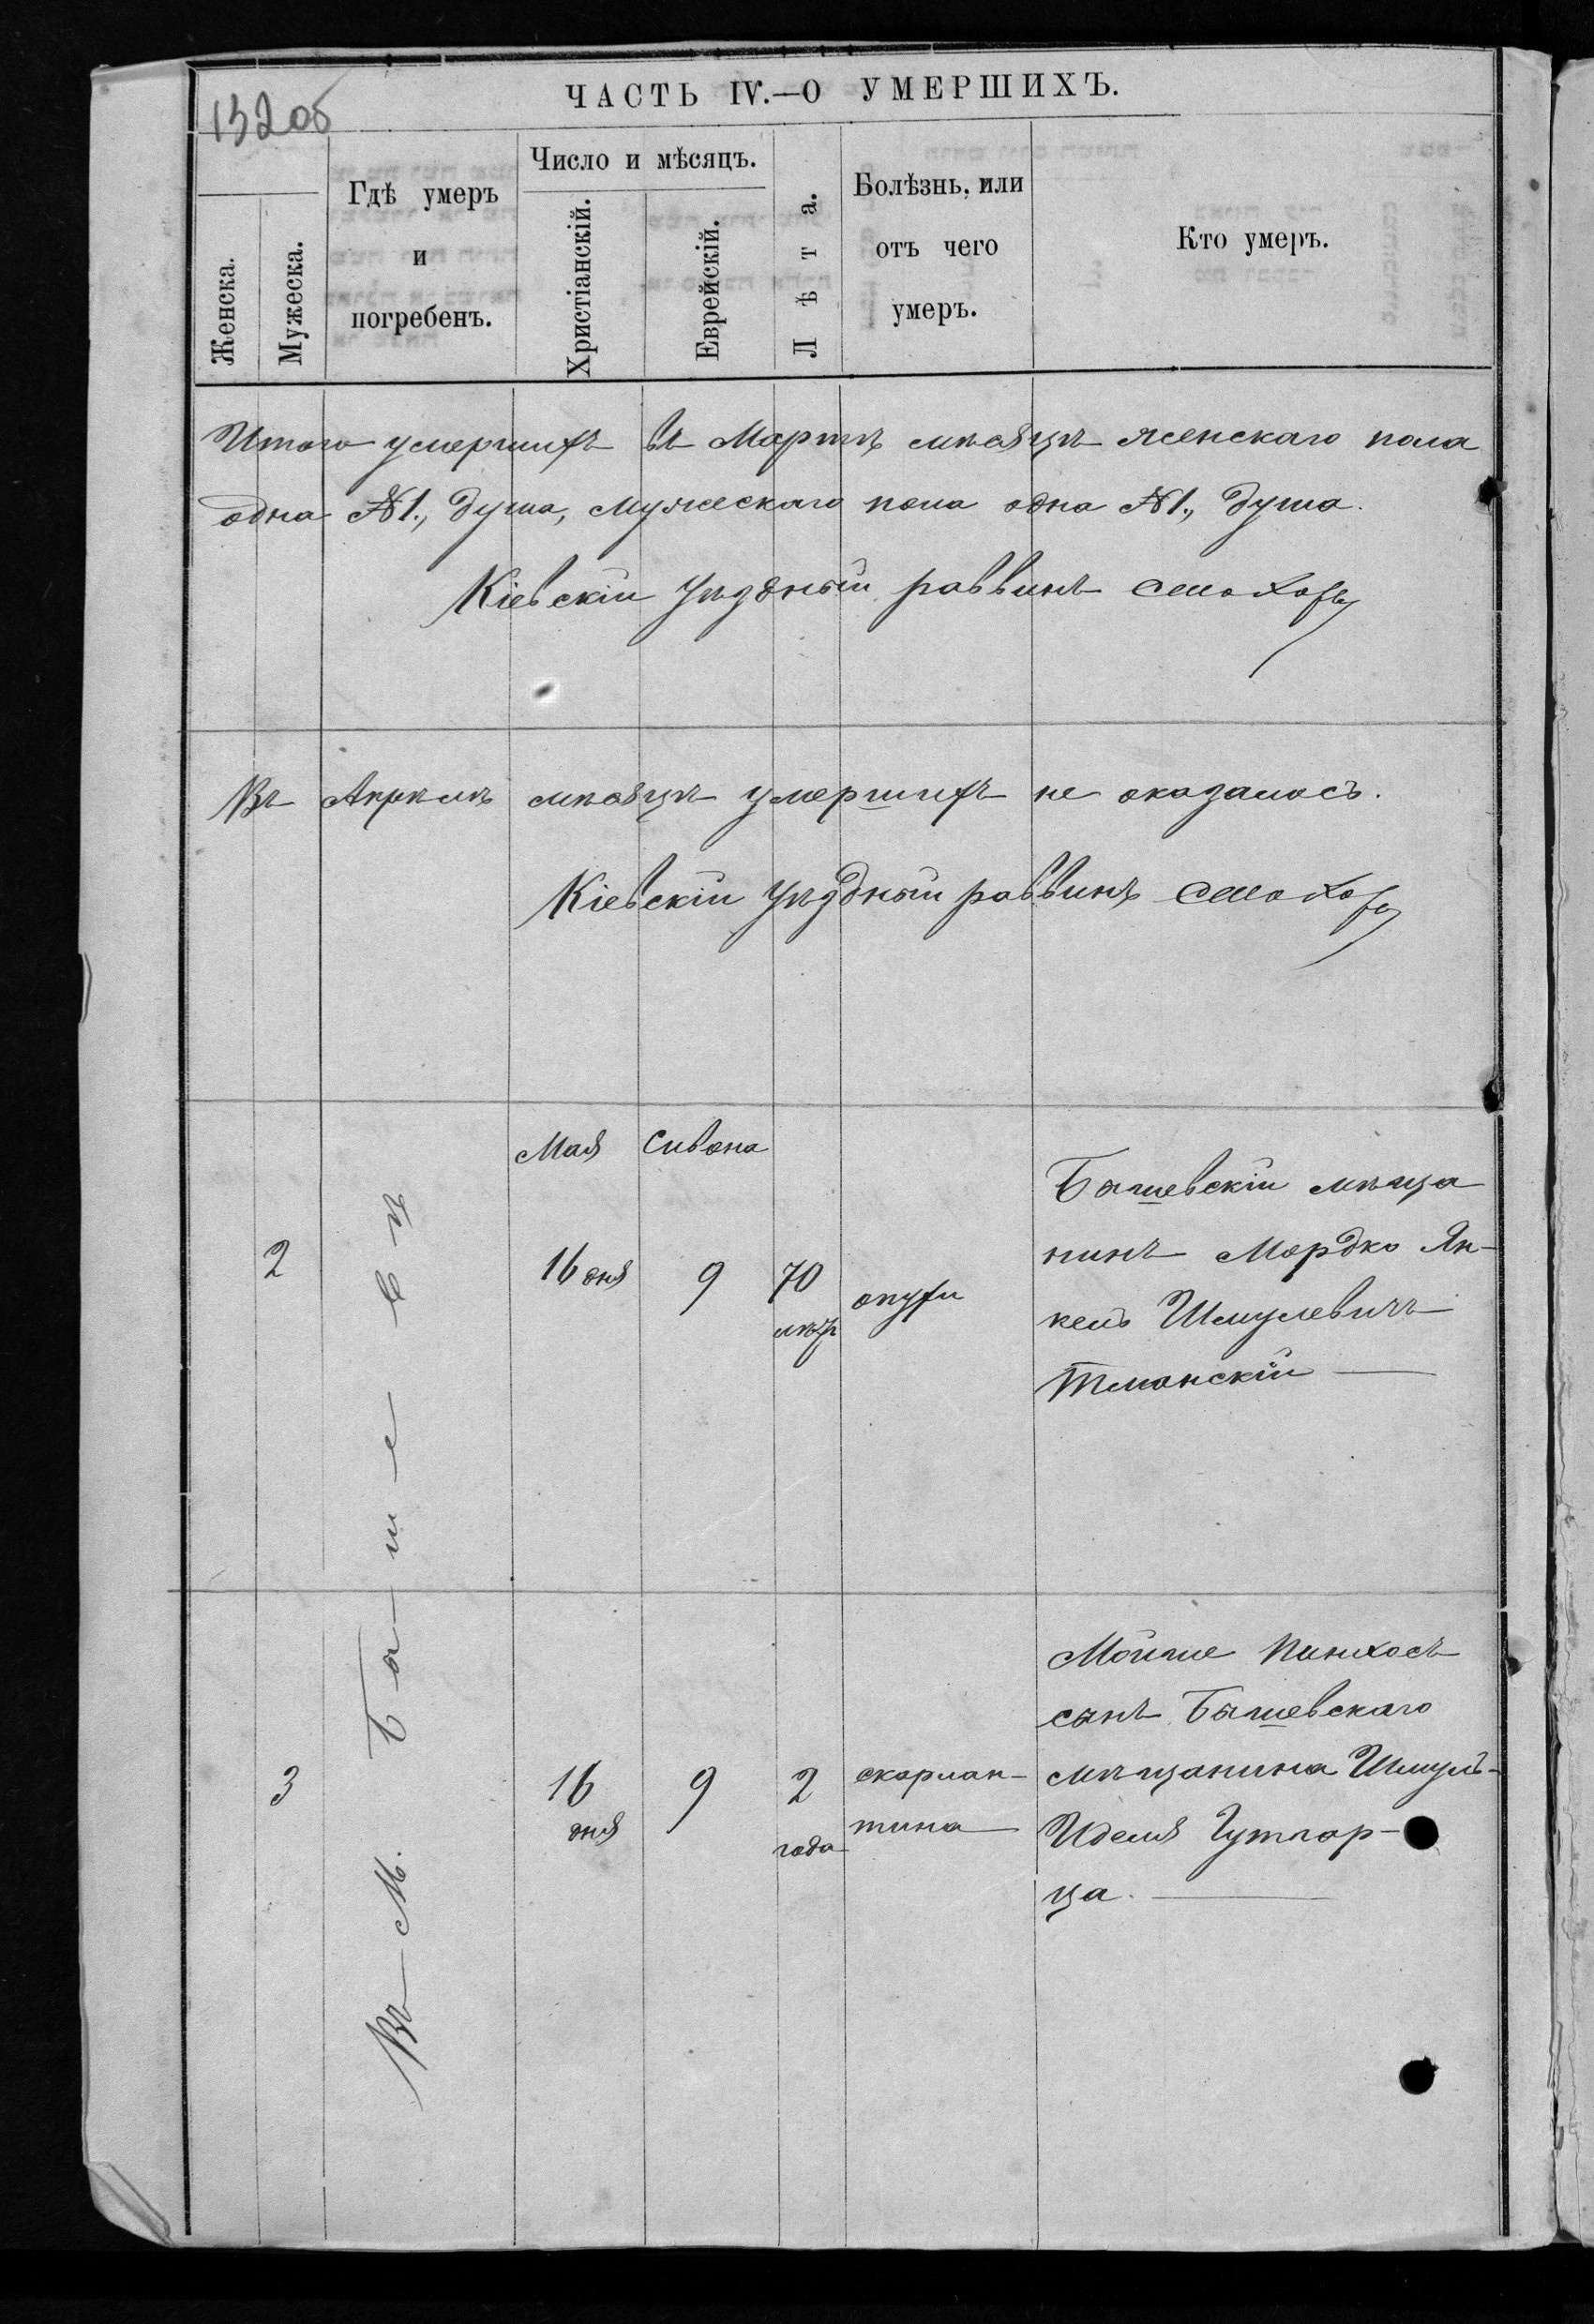 132об
ЧАСТЬ IV.—О УМЕРШИХЪ.
Женска.
Мужеска.
Гдѣ умеръ
и
погребенъ.
Число и мѣсяцъ.
Христіанскій.
Еврейскій.
Лѣта.
Болѣзнь, или
отъ чего
умеръ.
Кто умеръ.
Итого умершихъ въ Мартѣ мѣсяцѣ женскаго пола
одна №1., душа, мужескаго пола одна №1., душа.
Кіевскій уѣздный раввинъ
Въ Апрѣлѣ мѣсяцѣ умершихъ не оказалось.
Кіевскій уѣздный раввинъ
Въ М. Бышевѣ
Мая Сивона
2 16 дня 9 70 лѣтъ опухи
Бышевскій мѣща
нинъ Мордко Ян-
кель Шмулевичъ
Тманскій
3 16 дня 9 2 года скарлан-
тина
Мойше Пинхосъ
сынъ Бышевскаго
мѣщанина Шмуль-
Иделя Гутгар-
ца.